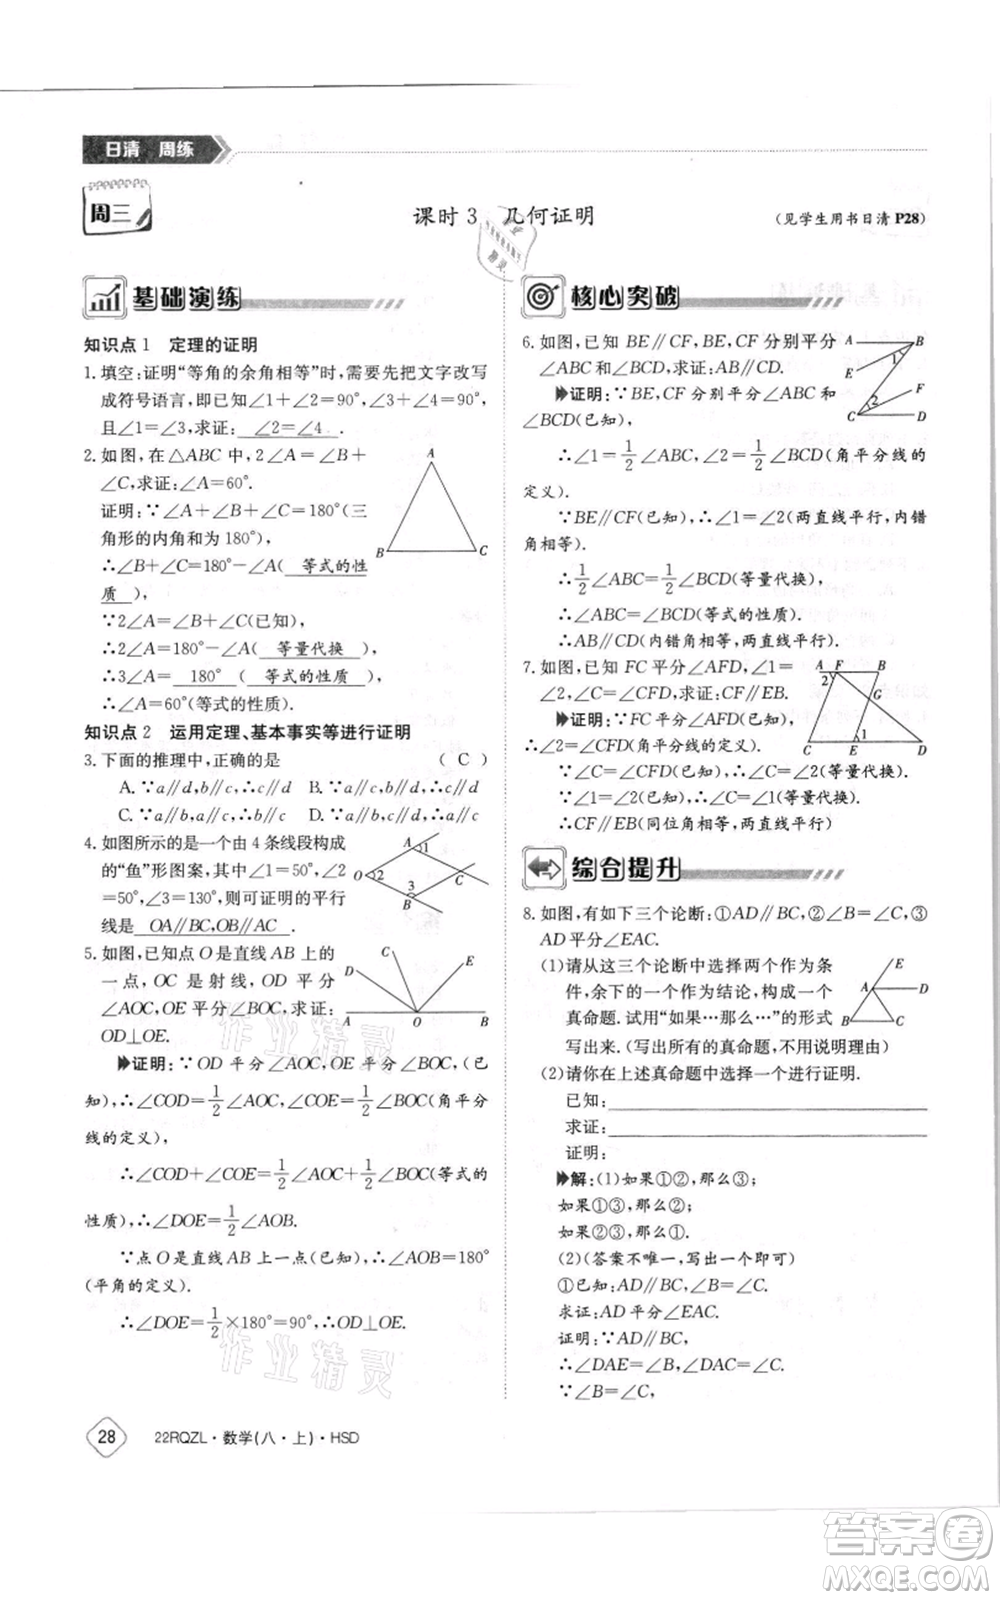 日清 周练
周三
课时3 几何证明
(见学生用书日清P28)
基础演练
知识点1 定理的证明
1.填空:证明“等角的余角相等”时,需要先把文字改写
成符号语言,即已知∠1+∠2=90°,∠3+∠4=90°,
且∠1=∠3,求证: ∠2=∠4 .
2.如图,在△ABC中,2∠A=∠B+
∠C,求证:∠A=60°.
证明:∵∠A+∠B+∠C=180°(三
角形的内角和为180°),
∴∠B+∠C=180°-∠A( 等式的性
质 ),
∵2∠A=∠B+∠C(已知),
∴2∠A=180°-∠A( 等量代换 ),
∴3∠A= 180° ( 等式的性质 ),
∴∠A=60°(等式的性质).
A
B
C
知识点2 运用定理、基本事实等进行证明
3.下面的推理中,正确的是 ( C )
A.∵a∥d,b∥c,∴c∥d B.∵a∥c,b∥d,∴c∥d
C.∵a∥b,a∥c,∴b∥c D.∵a∥b,c∥d,∴a∥c
4.如图所示的是一个由4条线段构成
的“鱼”形图案,其中∠1=50°,∠2
=50°,∠3=130°,则可证明的平行
线是 OA∥BC,OB∥AC .
A
1
O
2
3
C
B
5.如图,已知点O是直线AB上的
一点,OC是射线,OD平分
∠AOC,OE平分∠BOC,求证:
OD⊥OE.
C
D
E
A
O
B
证明:∵OD平分∠AOC,OE平分∠BOC(已
知),∴∠COD=1/2∠AOC,∠COE=1/2∠BOC(角平分
线的定义),
∴∠COD+∠COE=1/2(∠AOC+∠BOC)(等式的
性质),∴∠DOE=1/2∠AOB.
∵点O是直线AB上一点(已知),∴∠AOB=180°
(平角的定义).
∴∠DOE=1/2×180°=90°,∴OD⊥OE.
核心突破
6.如图,已知BE∥CF,BE,CF分别平分
∠ABC和∠BCD,求证:AB∥CD.
证明:∵BE,CF分别平分∠ABC和
∠BCD(已知),
A
B
1
E
F
2
C
D
∴∠1=1/2∠ABC,∠2=1/2∠BCD(角平分线的
定义).
∵BE∥CF(已知),∴∠1=∠2(两直线平行,内错
角相等).
∴1/2∠ABC=1/2∠BCD(等量代换),
∴∠ABC=∠BCD(等式的性质),
∴AB∥CD(内错角相等,两直线平行).
7.如图,已知FC平分∠AFD,∠1=
∠2,∠C=∠CFD,求证:CF∥EB.
证明:∵FC平分∠AFD(已知),
∴∠2=∠CFD(角平分线的定义).
∵∠C=∠CFD(已知),∴∠2=∠C(等量代换).
∵∠1=∠2(已知),∴∠C=∠1(等量代换),
∴CF∥EB(同位角相等,两直线平行)
A
F
B
2
G
1
C
E
D
综合提升
8.如图,有如下三个论断:①AD∥BC,②∠B=∠C,③
AD平分∠EAC.
(1)请从这三个论断中选择两个作为条
件,余下的一个作为结论,构造一个
真命题.试用“如果…那么…”的形式
写出来.(写出所有的真命题,不用说明理由)
E
A
D
B
C
(2)请你在上述真命题中选择一个进行证明.
已知:
求证:
证明:
解:(1)如果①②,那么③;
如果①③,那么②;
如果②③,那么①.
(2)(答案不唯一,写出一个即可)
①已知:AD∥BC,∠B=∠C.
求证:AD平分∠EAC.
证明:∵AD∥BC,
∴∠DAE=∠B,∠DAC=∠C.
∵∠B=∠C,
28
22RQZL·数学(八·上)·HSD
作业精灵
作业精灵
答案卷
MXQE.COM